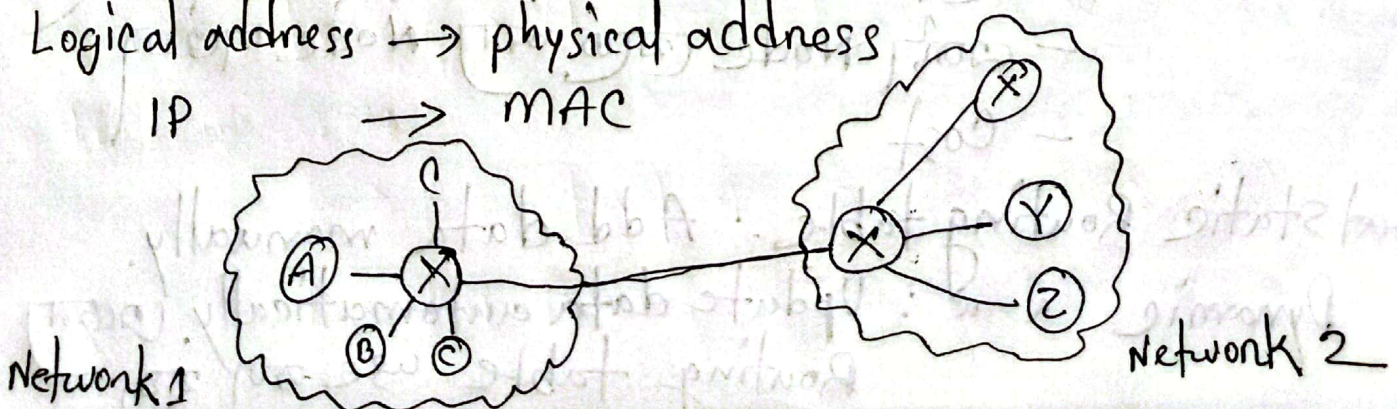 Logical address → physical address
IP → MAC
X
C
A
X
X
Y
B
C
Z
Network 1
Network 2